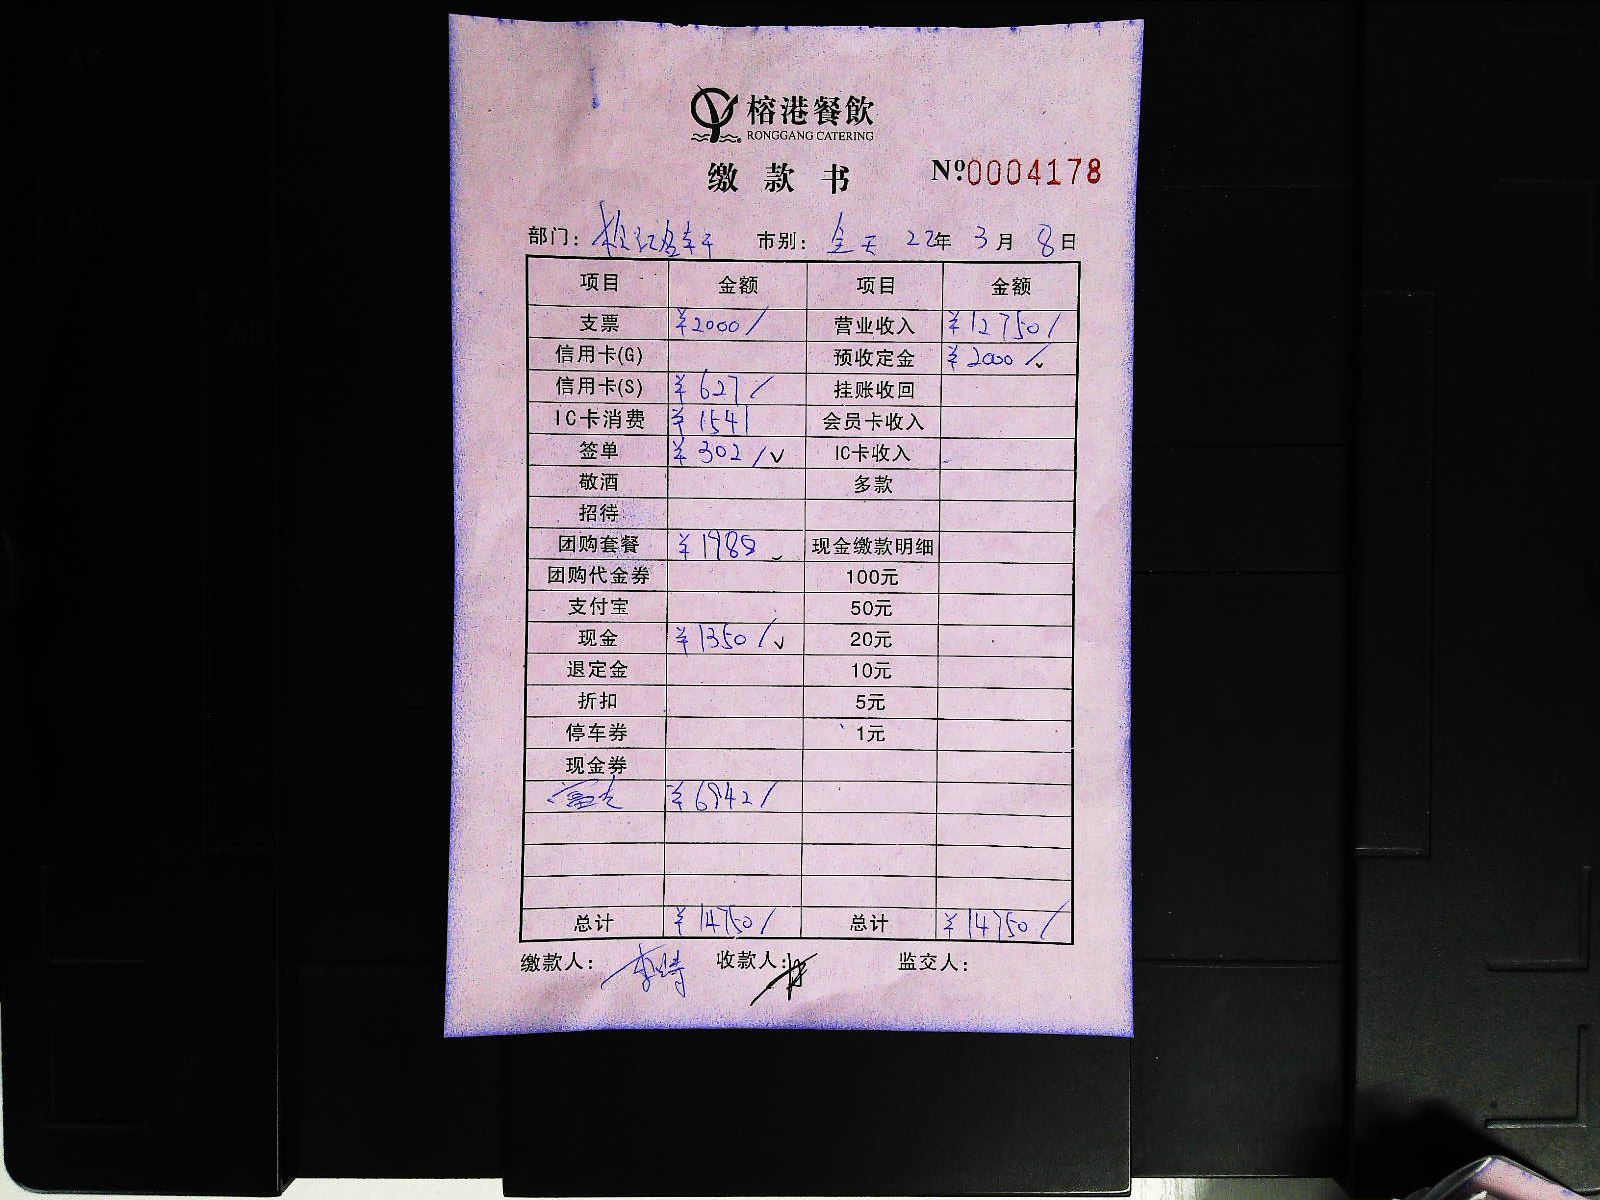 榕港餐飲
RONGGANG CATERING
缴款书 №0004178
部门： 市别：全天 22年 3月 8日
项目 金额 项目 金额
支票 ¥2000/ 营业收入 ¥12750/
信用卡(G) 预收定金 ¥2000/
信用卡(S) ¥627/ 挂账收回
IC卡消费 ¥1541 会员卡收入
签单 ¥302/√ IC卡收入
敬酒 多款
招待
团购套餐 ¥1988 现金缴款明细
团购代金券 100元
支付宝 50元
现金 ¥1350/√ 20元
退定金 10元
折扣 5元
停车券 1元
现金券
¥6942/
总计 ¥14750/ 总计 ¥14750/
缴款人： 收款人： 监交人：